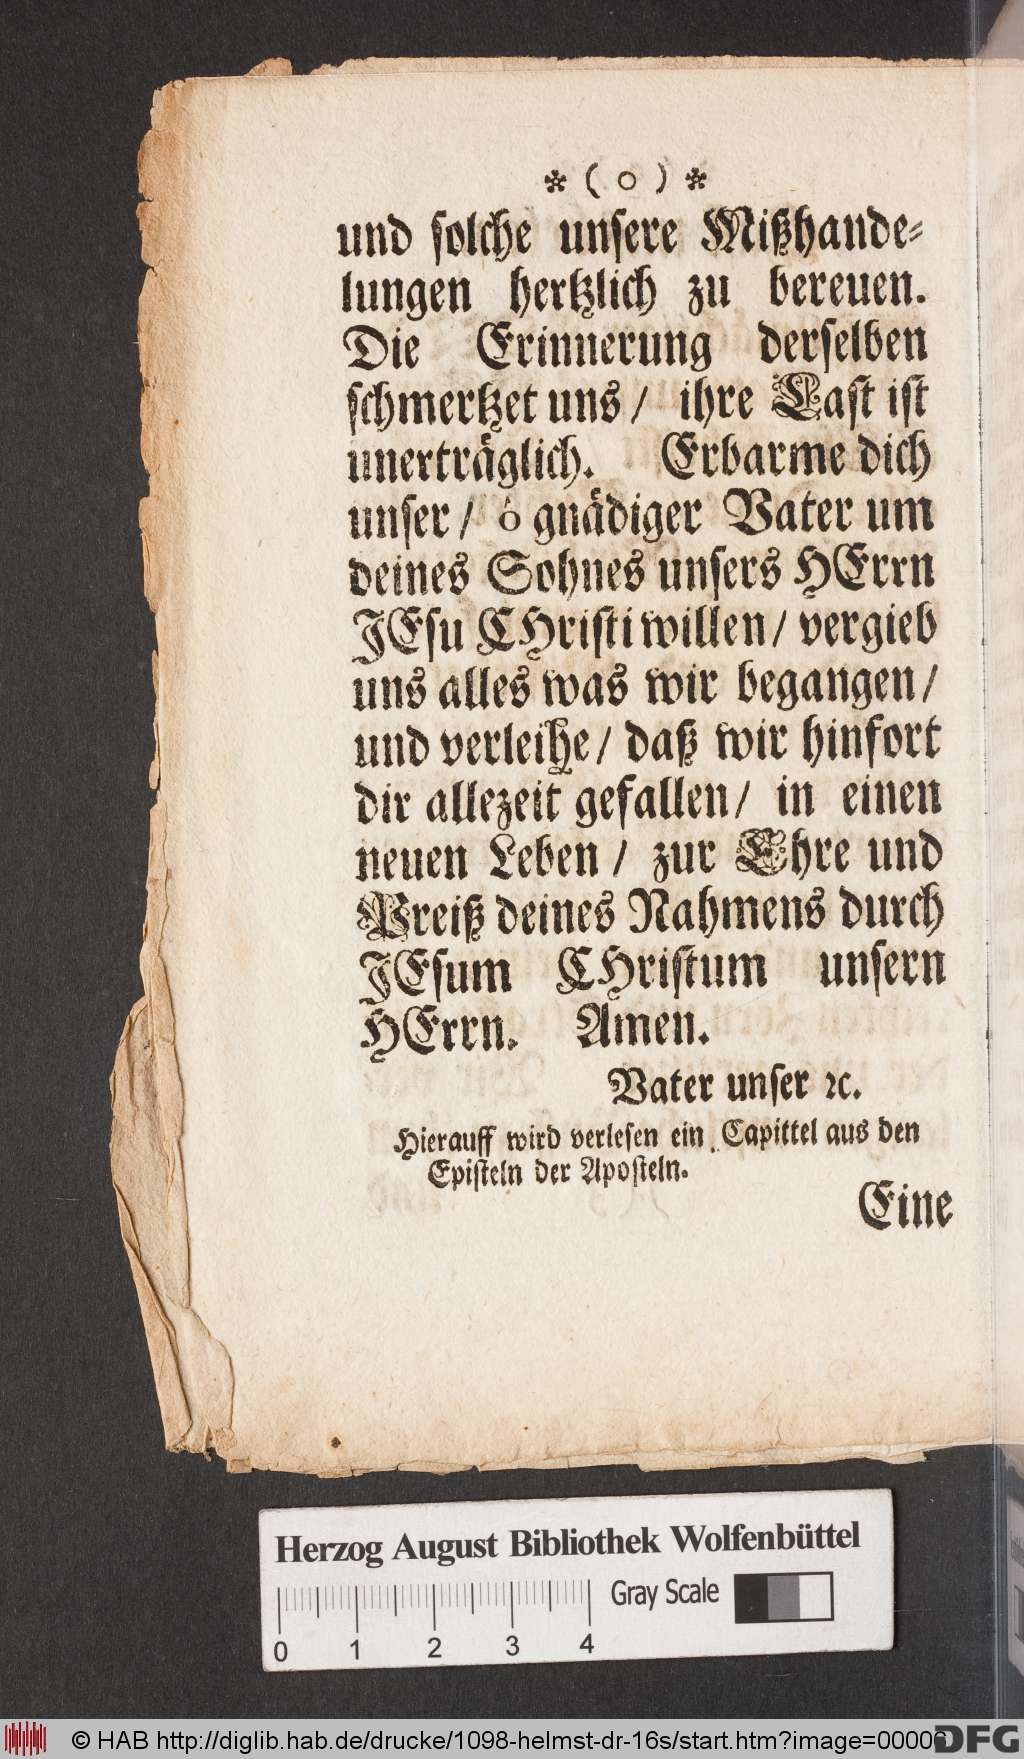 * ( o ) *
und solche unsere Mißhande-
lungen hertzlich zu bereuen.
Die Erinnerung derselben
schmertzet uns / ihre Last ist
unerträglich. Erbarme dich
unser / ó gnädiger Vater um
deines Sohnes unsers HErrn
JEsu CHristi willen / vergieb
uns alles was wir begangen /
und verleihe / daß wir hinfort
dir allezeit gefallen / in einen
neuen Leben / zur Ehre und
Preiß deines Nahmens durch
JEsum CHristum unsern
HErrn. Amen.
Vater unser ꝛc.
Hierauff wird verlesen ein Capittel aus den
Episteln der Aposteln.
Eine
Herzog August Bibliothek Wolfenbüttel
Gray Scale
0 1 2 3 4
© HAB http://diglib.hab.de/drucke/1098-helmst-dr-16s/start.htm?image=00006
DFG